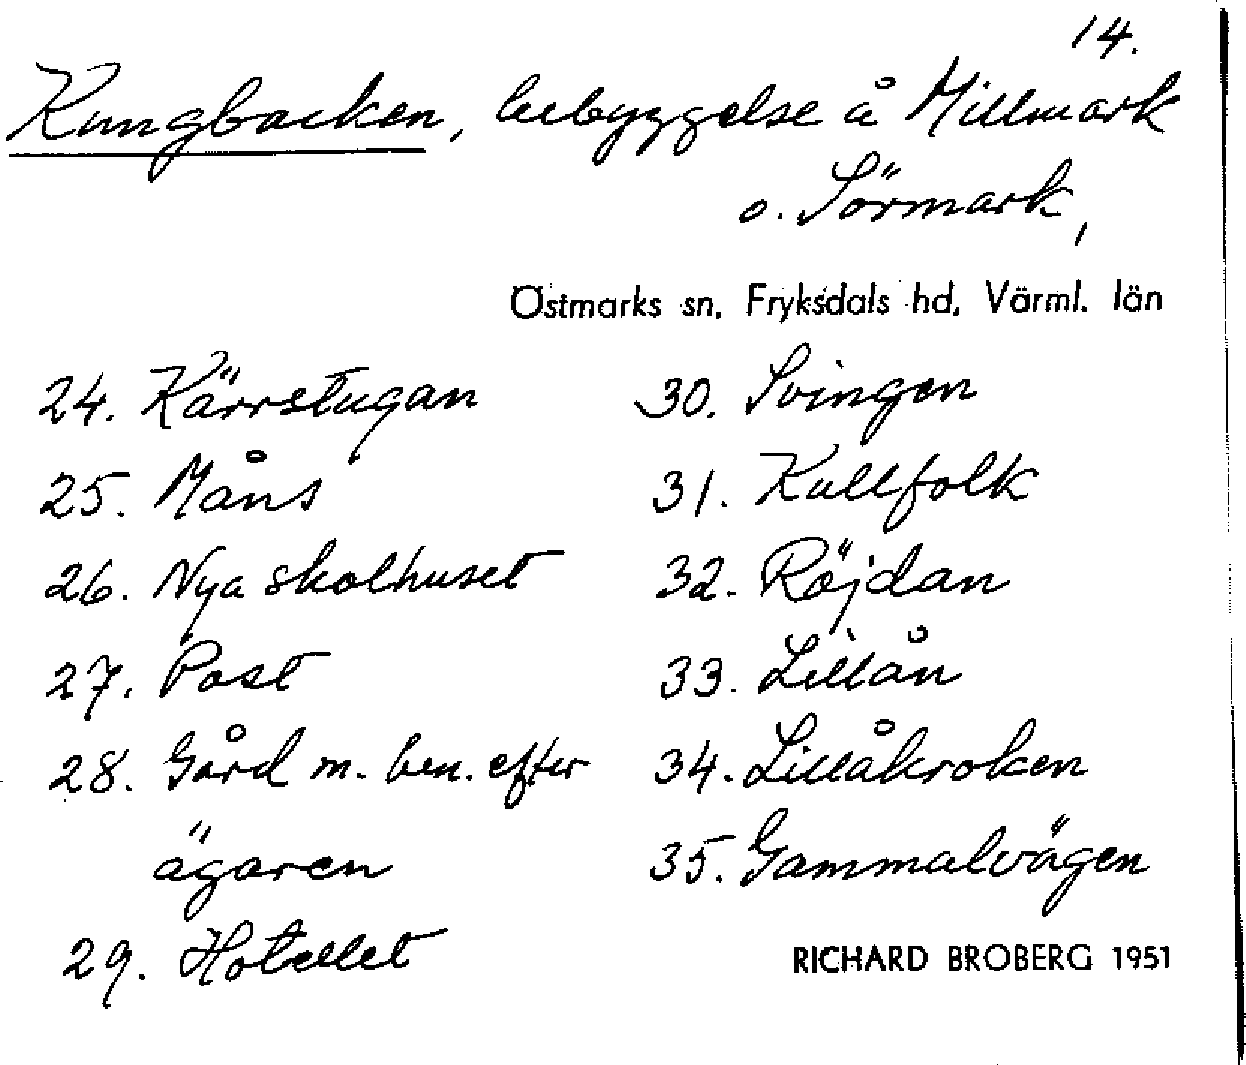 14.
Kungbacken, bebyggelse å Millmark
o. Sörmark,
Östmarks sn, Fryksdals hd, Värml. län
24. Kärrstugan
25. Måns
26. Nya skolhuset
27. Post
28. Gård m. ben. efter
ägaren
29. Hotellet
30. Svingen
31. Kullfolk
32. Röjdan
33. Lillån
34. Lillåkroken
35. Gammalvägen
RICHARD BROBERG 1951